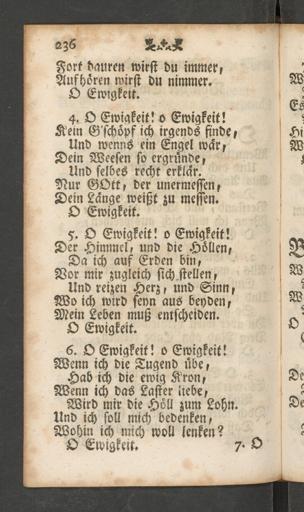 236
Fort dauren wirst du immer,
Aufhören wirst du nimmer.
O Ewigkeit.
4. O Ewigkeit! o Ewigkeit!
Kein G'schöpf ich irgends finde,
Und wenns ein Engel wär,
Dein Weesen so ergründe,
Und selbes recht erklär.
Nur GOtt, der unermessen,
Dein Länge weißt zu messen.
O Ewigkeit.
5. O Ewigkeit! o Ewigkeit!
Der Himmel, und die Höllen,
Da ich auf Erden bin,
Vor mir zugleich sich stellen,
Und reizen Herz, und Sinn,
Wo ich wird seyn aus beyden,
Mein Leben muß entscheiden.
O Ewigkeit.
6. O Ewigkeit! o Ewigkeit!
Wenn ich die Tugend übe,
Hab ich die ewig Kron,
Wenn ich das Laster liebe,
Wird mir die Höll zum Lohn.
Und ich soll mich bedenken,
Wohin ich mich woll lenken?
O Ewigkeit.
7. O